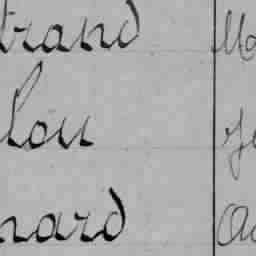 trand Ma
lou Je
nard Au